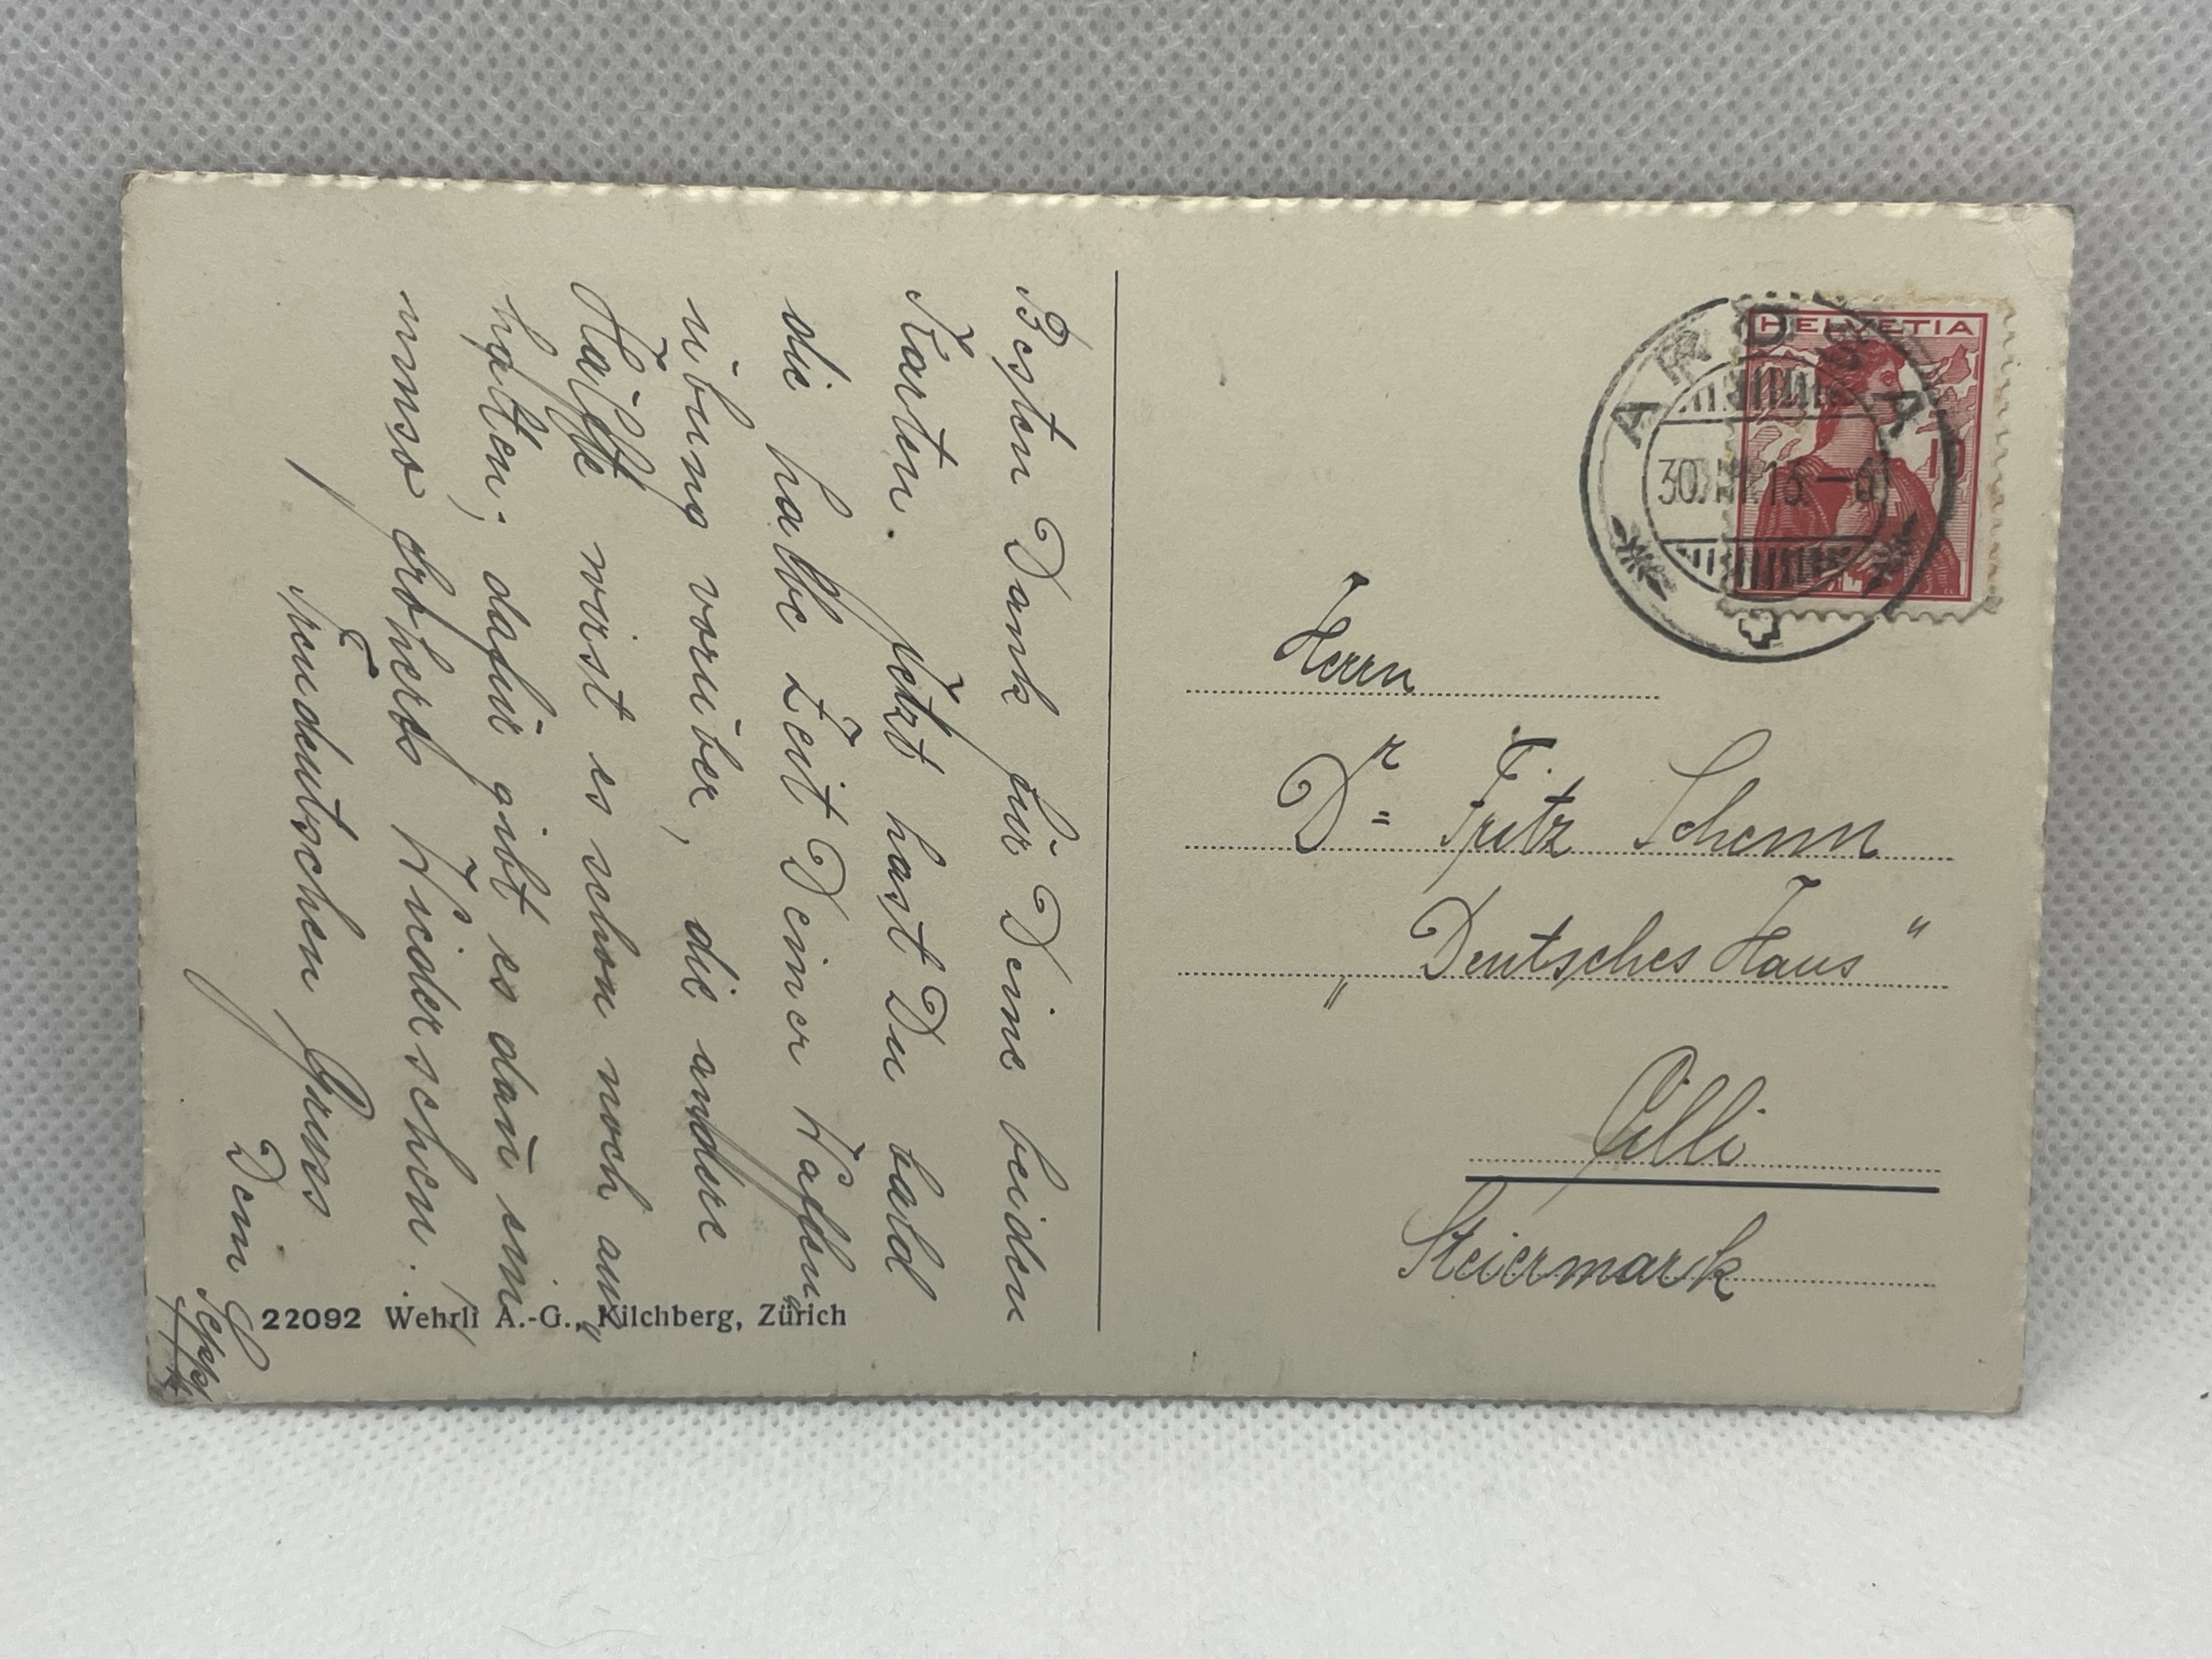 Besten Dank für Deine beiden
Karten. Jetzt hast Du bald
die halbe Zeit Deiner Waffen
übung vorüber, die andere
Hälfte wirst es schon noch aus
halten; dafür gibt es dañ ein
umso froheres Wiedersehen!
Treudeutschen Gruss
Dein
Sepp
22092 Wehrli A.-G., Kilchberg, Zürich
HELVETIA
10
ARDEZ
30
Herrn
Dr= Fritz Schenn
„Deutsches Haus“
Cilli
Steiermark